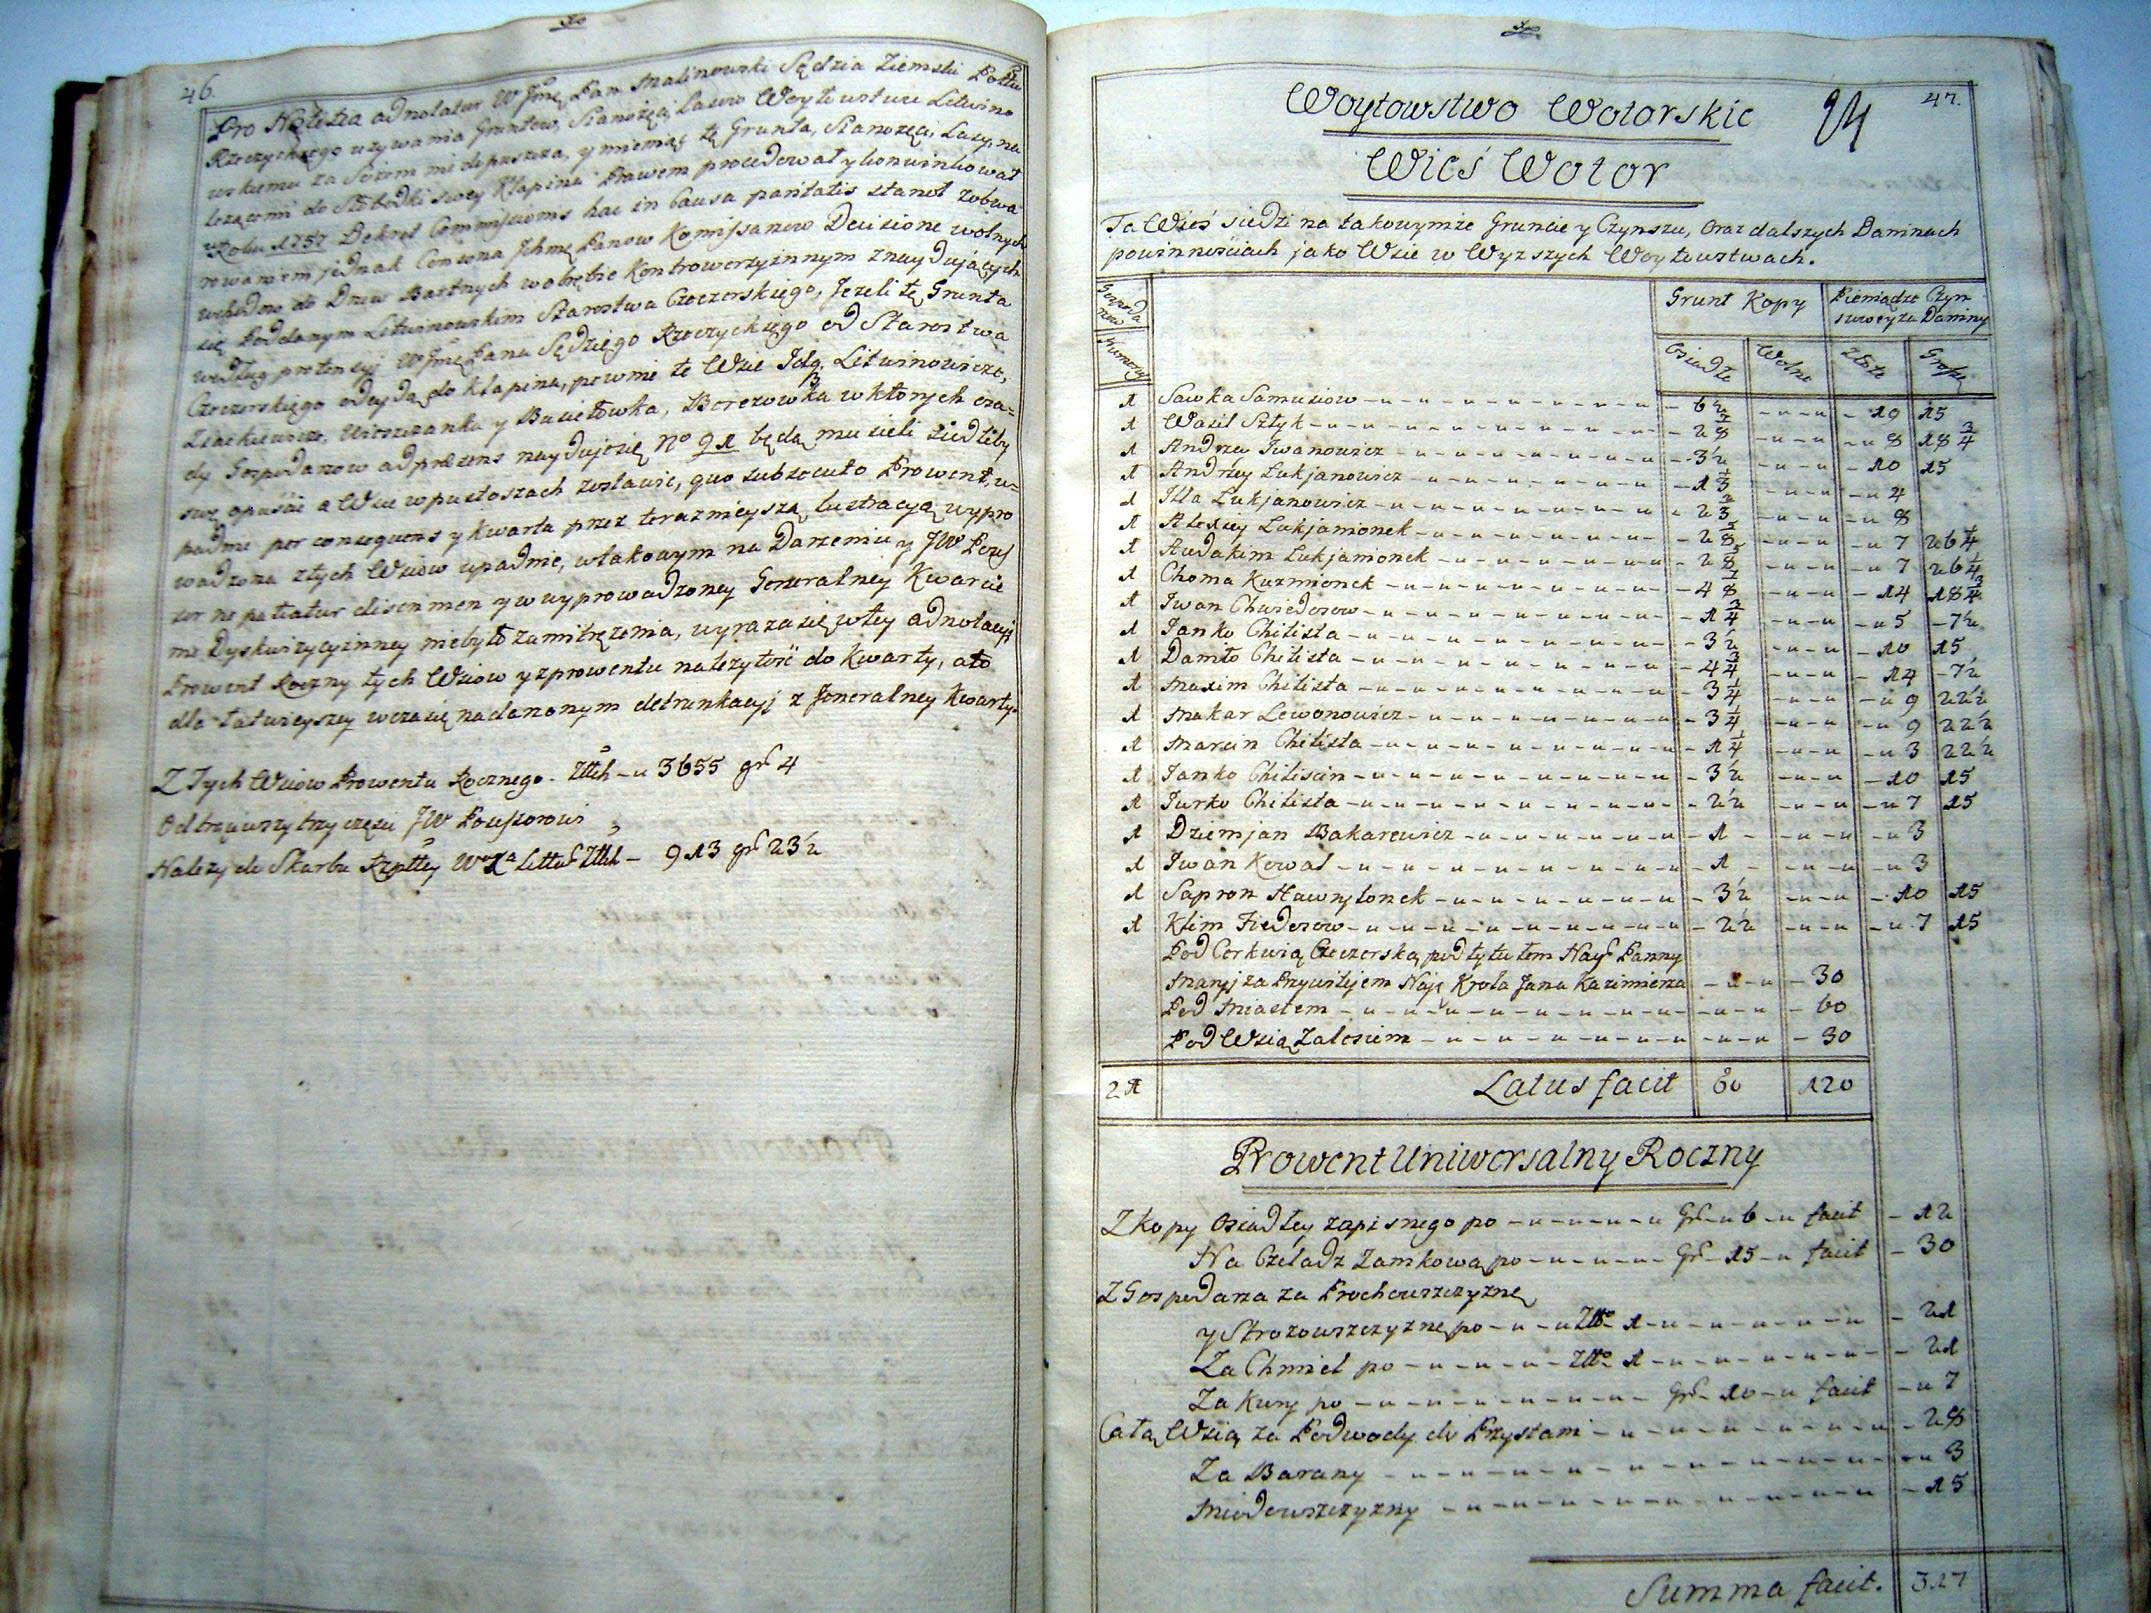 46.
Pro Notitia adnotatur W Jmć Pan Malinowski Sędzia Ziemski Pottu
Rzeczyckiego używania Gruntow, Sianożęci, Lasow Woytowstwu Litwino
wskiemu za Sożem nie dopuszcza, y mieniąc te Grunta, Sianożęci, Lasy, na
leżącemi do Słobodki swey Kłapina Prawem procedował y konwinkował
w Roku 1757 Dekret Commissionis hac in Causa paritatis stanoł zobwa
rowaniem jednak Ichmć Panow Komissarzow Decisione wolnych
wchodow do Drzew Bartnych w obrębie Kontrowerzyinnym znayduiących
się Poddanym Litwinowskim Starostwa Czeczerskiego, Jeżeli te Grunta
według pretensyi W Jmć Pana Sędziego Rzeczyckiego od Starostwa
Czeczerskiego odeydą do Kłapina, pewnie te Wsie Litwinowicze,
Wieszczanka y Wasielowka, Berezowka w ktorych cza=
dy Gospodarzow ad præsens nayduje się No 91 będą musieli siedliby
swe opuścić a Wsie w pustoszach zostawić, quo subsecuto Prowent u=
padnie per consequens y Kwarta przez teraznieyszą lustracyą wypro
wadzona z tych Wsiow upadnie, w takowym na Darzeniu y JW Poss
sor ne patiatur discrimen y w wyprowadzoney Generalney Kwarcie
nie Dyskwizycyinney niebyło zamitrężenia, wyraża się w tey adnotacyi
Prowent Roczny tych Wsiow y z prowentu należytość do Kwarty, a to
dla łatwieyszey w czasie nadarzonym detrunkacyi z Generalney Kwarty.
Z Tych Wsiow Prowentu Rocznego - Złłch - u 3655 gr 4
Odtrąciwszy trzy częsci JW Possessorowi
Należy do Skarbu Rzpltey W Xa Littu Złłch - 913 gr 23½
47.
Woytowstwo Wotorskie
24
Wieś Wotor
Ta Wieś siedzi na takowymże Gruncie y Czynszu, Oraz dalszych Daninach
powinnościach jako Wsie w Wyzszych Woytowstwach.
Gospodarzow Numerus
Grunt Kopy
Pieniądze Czynszowe y za Daniny
Osiadłe Wolne Złote Grosze
1 Sawka Samusiow - 6½ - 19 15
1 Wasil Sztyk - 2 7/8 - 8 18¾
1 Andrzey Iwanowicz - 3½ - 10 15
1 Andrzey Lukjanowicz - 1⅓ - 4
1 Illa Lukjanowicz - 2⅔ - 8
1 Alexiey Lukjanionek - 2 5/8 - 7 26¼
1 Audakim Lukjanionek - 2 5/8 - 7 26¼
1 Choma Kuzmionek - 4 7/8 - 14 18¾
1 Iwan Chwiedorow - 1¾ - 5 - 7½
1 Janko Chilista - 3½ - 10 15
1 Daniło Chilista - 4¾ - 14 - 7½
1 Maxim Chilista - 3¼ - 9 22½
1 Makar Lewonowicz - 3¼ - 9 22½
1 Marcin Chilista - 1¼ - 3 22½
1 Janko Chiliscin - 3½ - 10 15
1 Jurko Chilista - 2½ - 7 15
1 Dziemjan Bakarewicz - 1 - 3
1 Iwan Kowal - 1 - 3
1 Sapron Hawrylonek - 3½ - 10 15
1 Klim Fiedorow - 2½ - 7 15
Pod Cerkwią Czeczerską pod tytułem Nays Panny
Maryi za Przywilejem Nayj Krola Jana Kazimierza - 30
Pod Miastem - 60
Pod Wsią Zalesiem - 30
21 Latus facit 60 120
Prowent Uniwersalny Roczny
Z Kopy Osiadłey zapisnego po - Gr 6 - facit - 12
Na Czeladz Zamkową po - Gr 15 - facit - 30
Z Gospodarza za Prochowszczyznę
y Strozowszczyznę po - Złło 1 - 21
Za Chmiel po - Złło 1 - 21
Za Kury po - Gr 10 - facit - 7
Całą Wsią za Podwody do Przystani - 28
Za Barany - 3
Miodowszczyzny - 15
Summa facit. 317